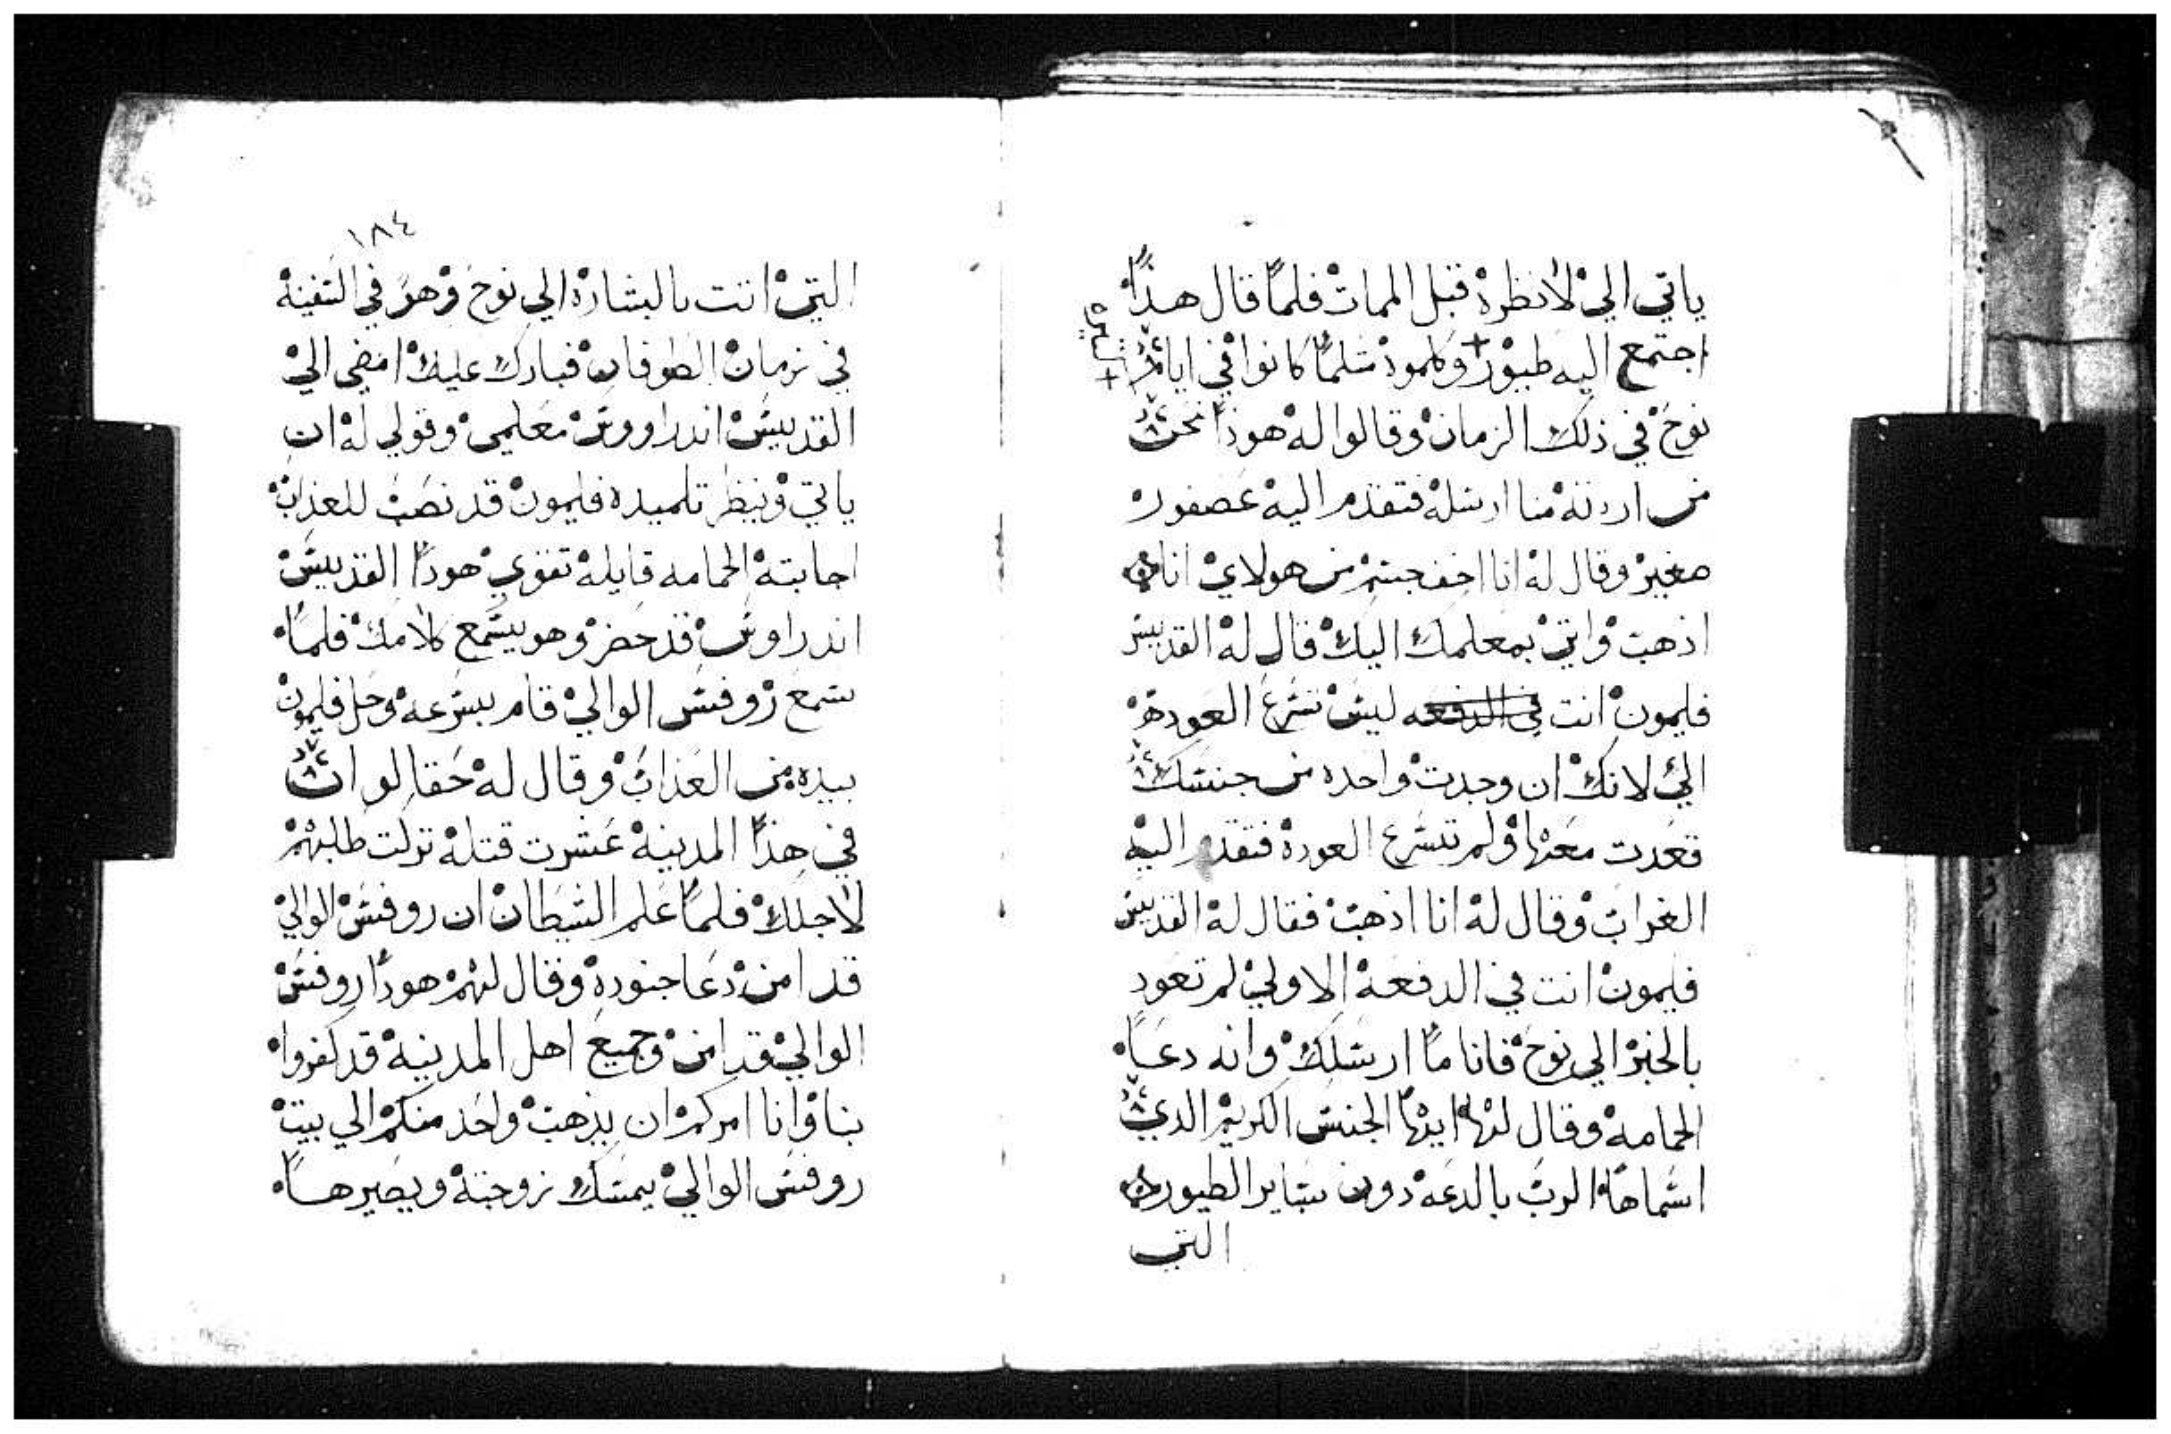 ياتي الي لانظره قبل الممات فلما قال هذا
اجتمع اليه طيور وكلموه مثلما كانوا في ايام
نوح في ذلك الزمان وقالوا له هوذا نحن
من اردته منا ارسله فتقدم اليه عصفور
صغير وقال له انا اخف جسم من هولاي انا
اذهب واتي بمعلمك اليك قال له القديس
فليمون انت في الدفعه ليس تسرع العوده
الي لانك ان وجدت واحده من جنسك
قعدت معها ولم تسرع العوده فتقدم اليه
الغراب وقال له انا اذهب فقال له القديس
فليمون انت في الدفعه الاولي لم تعود
بالخبر الي نوح فانا ما ارسلك وانه دعا
الحمامه وقال لها ايها الجنس الكريم الدي
اسماها الرب بالدعه دون ساير الطيور
التي
١٨٤
التي اتت بالبشاره الي نوح وهو في السفينه
في زمان الطوفان فبارك عليك امضي الي
القديس اندراووس معلمي وقولي له ان
ياتي وينظر تلميده فليمون قد نصب للعذاب
اجابته الحمامه قايله تقوي هودا القديس
اندراوس قد حضر وهو يسمع كلامك فلما
سمع روفس الوالي قام بسرعه وحل فليمون
بيده من العذاب وقال له حقا لو ان
في هذا المدينه عشرت قتله نزلت طلبتهم
لاجلك فلما علم الشيطان ان روفس الوالي
قد امن دعا جنوده وقال لهم هودا روفس
الوالي قد امن وجميع اهل المدينه قد كفروا
بنا وانا امركم ان يذهب واحد منكم الي بيت
روفس الوالي يمسك زوجته ويصيرها